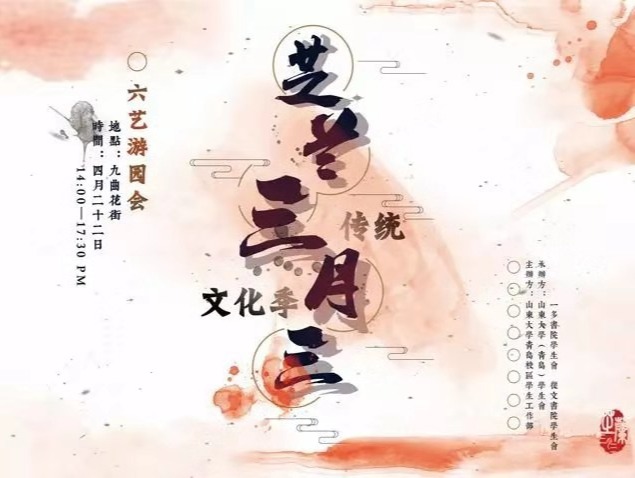 芝兰三月三
传统
文化季
六艺游园会
地點：九曲花街
時間：四月二十二日
14:00—17:30 PM
一多書院學生會 從文書院學生會
承辦方：山東大學（青島）學生會
主辦方：山東大學青島校區學生工作部